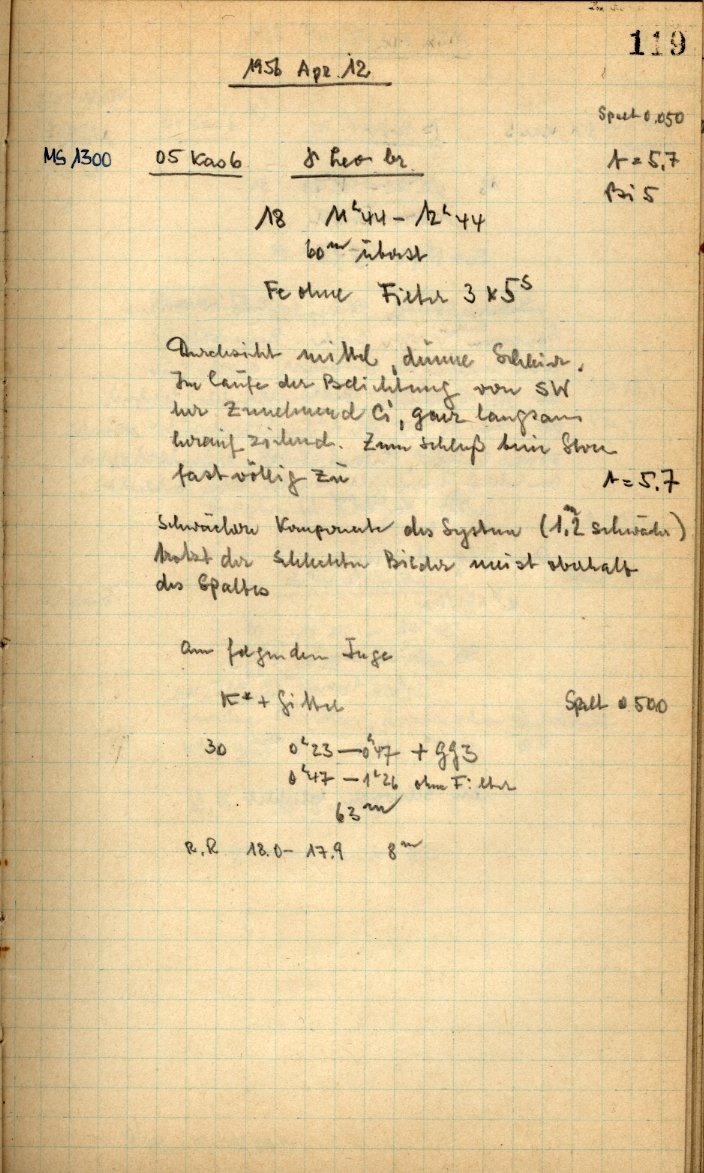 119
1956 Apr. 12
Spalt 0.050
MS 1300 05 Kas6 γ Leo br. t = 5,7
Bi 5
18 11ʰ44 – 12ʰ44
60ᵐ überst
Fe ohne Filter 3 x 5ˢ
Durchsicht mittel, dünne Schleier.
Im Laufe der Belichtung von SW
her zunehmend Ci, ganz langsam
herauf ziehend. Zum Schluß beim Stern
fast völlig zu t = 5,7
Schwächere Komponente des Systems (1,ᵐ2 schwächer)
trotz der schlechten Bilder meist oberhalb
des Spaltes
Am folgenden Tage
K* + Gitter Spalt 0.500
30 0ʰ23 — 0ʰ47 + GG3
0ʰ47 – 1ʰ26 ohne Filter
63ᵐ
R.R 18.0 – 17.9 8ᵐ